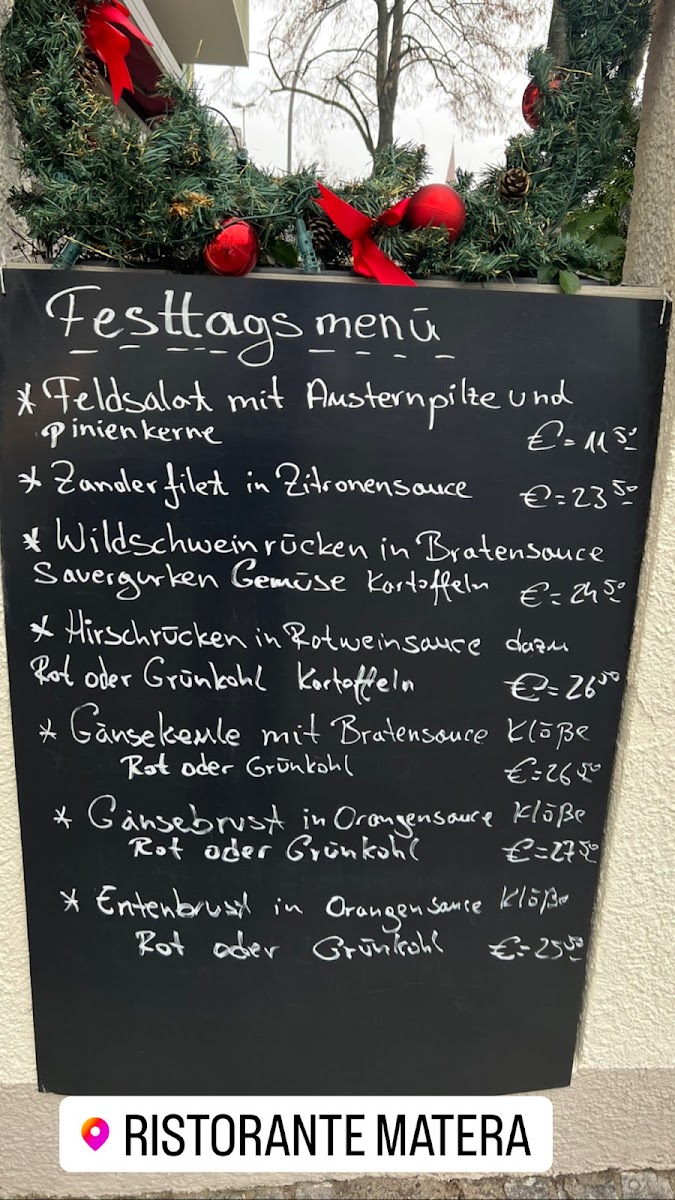 Festtagsmenü
* Feldsalat mit Austernpilze und
Pinienkerne €=11 50
* Zanderfilet in Zitronensauce €=23 50
* Wildschweinrücken in Bratensauce
Sauergurken Gemüse Kartoffeln €=24 50
* Hirschrücken in Rotweinsauce dazu
Rot oder Grünkohl Kartoffeln €=26 50
* Gänsekeule mit Bratensauce Klöße
Rot oder Grünkohl €=26 50
* Gänsebrust in Orangensauce Klöße
Rot oder Grünkohl €=27 50
* Entenbrust in Orangensauce Klöße
Rot oder Grünkohl €=25 50
RISTORANTE MATERA